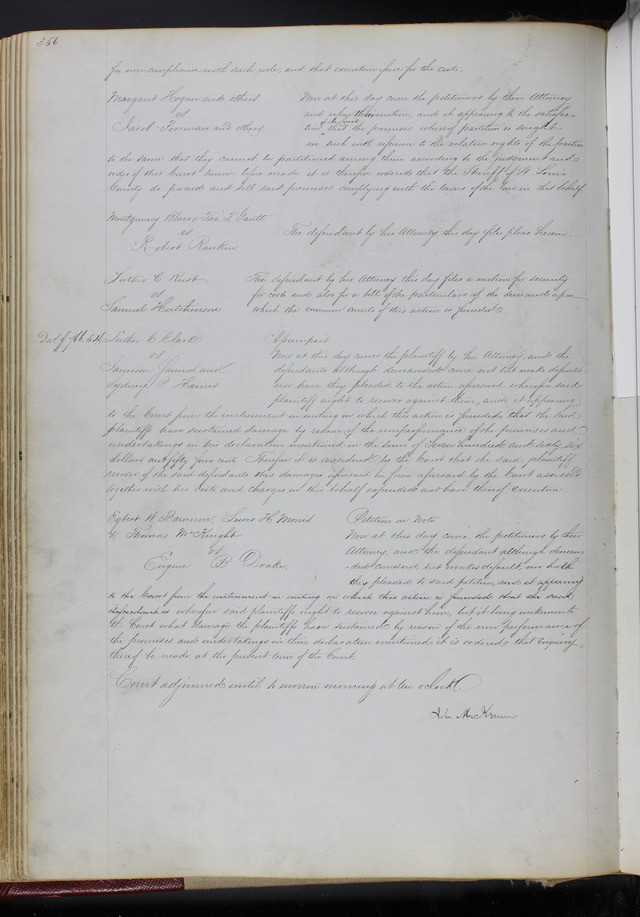 356
for non compliance with such rule, and that execution issue for the costs.
Margaret Hogan and others
vs
Jacob Fooman and others
Now at this day come the petitioners by their Attorney
and and it appearing to the satisfac-
tion of the Court that the premises whereof partition is sought
are such with reference to the relative rights of the parties
to the same that they cannot be partitioned among them according to the judgment and
order of this Court it is therefore ordered that the Sheriff of St Louis
County do proceed and sell said premises complying with the terms of the law in that behalf
Montgomery Blair & Tho. T. Gantt
vs
Robert Rankin
The defendant by his Attorney this day files pleas herein.
Luther C Clark
vs
Samuel Hutchinson
The defendant by his Attorney this day files a motion for security
for costs and also for a bill of the particulars of the demand upon
which the common counts of this action is founded.
Luther C Clark
vs
Jamison Samuel and
Sydney P. Haines
Assumpsit
Now at this day comes the plaintiff by his Attorney, and the
defendants although demanded come not but make default
nor have they pleaded to the action aforesaid wherefore said
plaintiff ought to recover against them, and it appearing
to the Court from the instrument in writing on which this action is founded that the said
plaintiff hath sustained damage by reason of the nonperformance of the promises and
undertakings in his declaration mentioned in the sum of hundred and sixty six
dollars and fifty four cents Therefore it is considered by the Court that the said plaintiff
recover of the said defendants this damages aforesaid in form aforesaid by the Court assessed
together with his costs and charges in this behalf expended and have thereof execution.
Egbert W. Barnum, Lewis H Morris
& Thomas McKnight
vs
Eugene P Drake.
Petition on Note
Now at this day come the petitioners by their
Attorney, and the defendant although deman-
ded comes not, but makes default, nor hath
he pleaded to said petition, and it appearing
to the Court from the instrument in writing on which this action is founded that the said
defendant is wherefor said plaintiffs ought to recover against him, but it being unknown to
the Court what damage the plaintiffs have sustained by reason of the non performance of
the promises and undertakings in their declaration mentioned it is ordered that enquiry
thereof be made at the present term of the Court.
Court adjourned until to morrow morning at ten oclock
John M. Krum